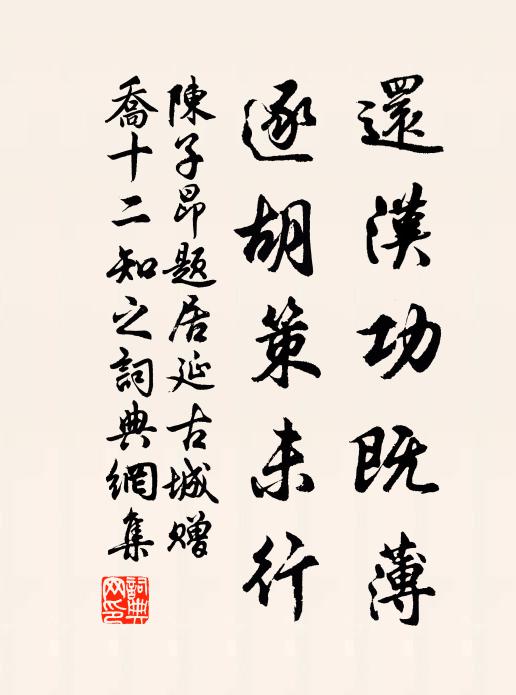 還漢功既薄
逐胡策未行
陳子昂題居延古城贈
喬十二知之詞典網集
詞典
网印